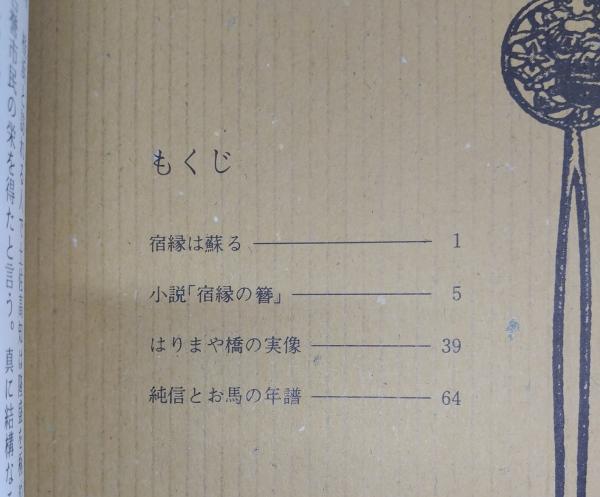 もくじ
宿縁は蘇る 1
小説「宿縁の簪」 5
はりまや橋の実像 39
純信とお馬の年譜 64
市民の栄を得たと言う。真に結構な